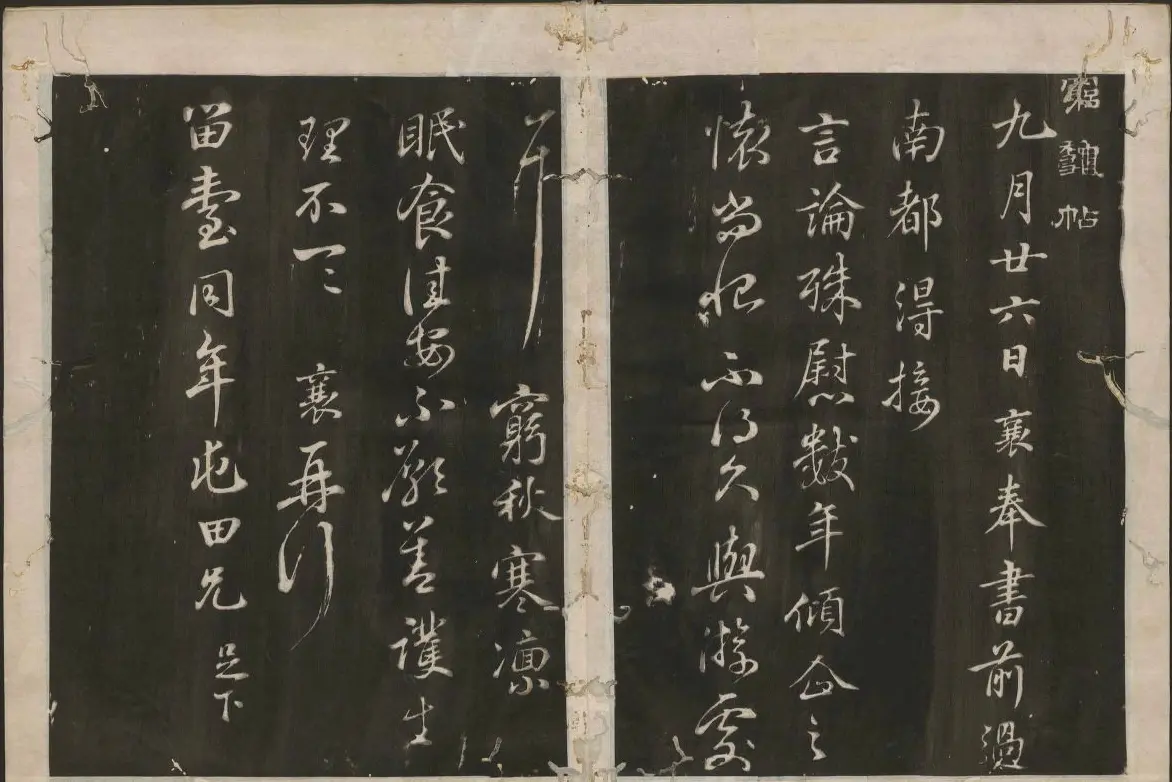 窮龝帖
九月廿六日襄奉書前過
南都得接
言論殊慰數年傾企之
懷尚恨不得久與游處
耳 窮秋寒凜
眠食佳安不願善護生
理不一一 襄再拜
留臺同年屯田兄足下